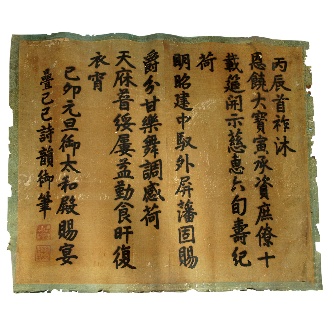 丙辰首祚沐
恩饒大寶寅承賚庶僚十
載筵開示慈惠六旬壽紀
荷
明昭建中馭外屏藩固賜
爵分甘樂舞調感荷
天庥普綏屢益勤食旰復
衣宵
己卯元旦御太和殿賜宴
疊己巳詩韻御筆